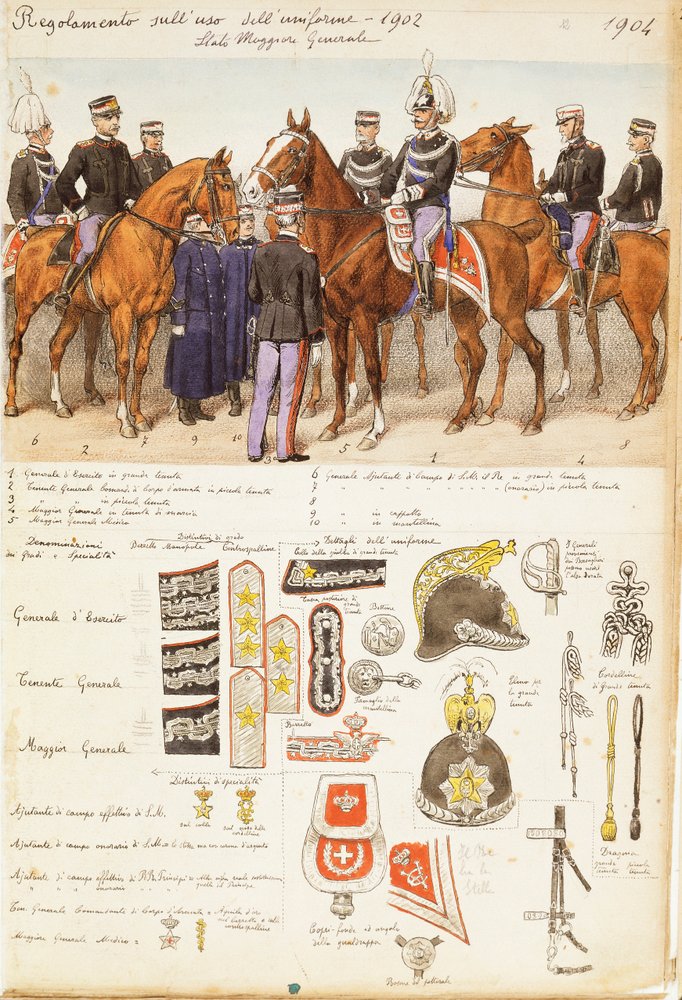 Regolamento sull'uso dell'uniforme - 1902
1904
Stato Maggiore Generale
6 2 7 9 10 3 5 1 4 8
1 Generale d'Esercito in grande tenuta
2 Tenente Generale Comand. di Corpo d'armata in piccola tenuta
3 " " in piccola tenuta
4 Maggior Generale in tenuta di marcia
5 Maggior Generale Medico
6 Generale Ajutante di Campo di S.M. il Re in grande tenuta
7 " " " " " " (onorario) in piccola tenuta
8
9 " " in cappotto
10 " " in mantellina
Denominazioni
dei Gradi e Specialità
Distintivi di grado
Berretto Manopole Controspalline
Dettagli dell'uniforme
Collo della giubba di grande tenuta
Generale d'Esercito
Tenente Generale
Maggior Generale
grande
tenuta
Bottone
Famaglio della
mantellina
Berretto
I Generali
provenienti
dai Bersaglieri
l'elsa dorata
Elmo per
la grande
tenuta
Cordelline
di Grande tenuta
Dragona
grande tenuta
piccola tenuta
Distintivi di specialità
sul collo
cordelline
Ajutante di campo effettivo di S.M.
Ajutante di campo onorario di S.M. = le stesse ma con corona d'argento
Ajutante di campo effettivo di R.R. Principi
" " " onorario " "
quella del Principe
Ten. Generale Comandante di Corpo d'Armata = Aquila d'oro
sul berretto e sulle
controspalline
Maggiore Generale Medico =
Copri-fonde ed angolo
della gualdrappa
Borchia del pettorale